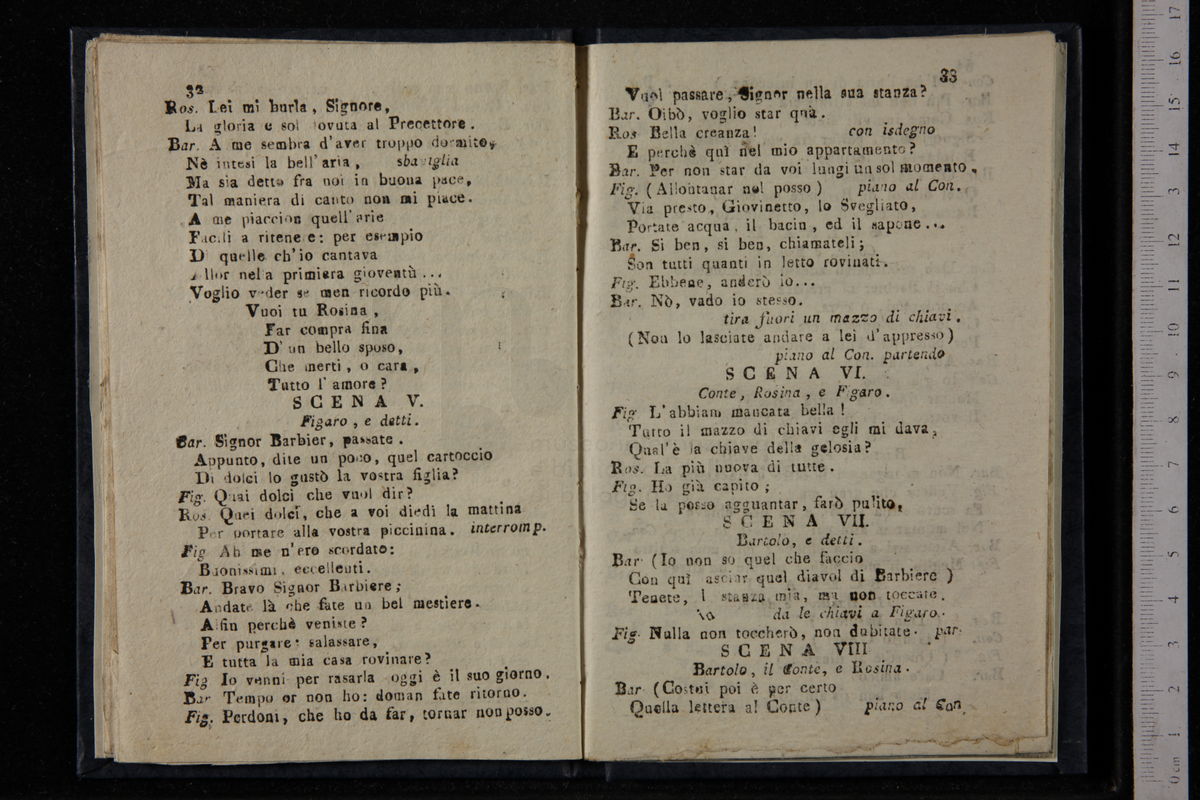 32
Ros. Lei mi burla, Signore,
La gloria e sol dovuta al Precettore.
Bar. A me sembra d'aver troppo dormito,
Nè intesi la bell'aria, sbaviglia
Ma sia detto fra noi in buona pace,
Tal maniera di canto non mi piace.
A me piaccion quell'arie
Facili a ritenere: per esempio
Di quelle ch'io cantava
Allor nella primiera gioventù ...
Voglio veder se men ricordo più.
Vuoi tu Rosina,
Far compra fina
D'un bello sposo,
Che merti, o cara,
Tutto l'amore?
SCENA V.
Figaro, e detti.
Bar. Signor Barbier, passate.
Appunto, dite un poco, quel cartoccio
Di dolci lo gustò la vostra figlia?
Fig. Quai dolci che vuol dir?
Ros. Quei dolci, che a voi diedi la mattina
Per portare alla vostra piccinina. interromp.
Fig Ah me n'ero scordato:
Buonissimi, eccellenti.
Bar. Bravo Signor Barbiere;
Andate là che fate un bel mestiere.
Alfin perchè veniste?
Per purgare: salassare,
E tutta la mia casa rovinare?
Fig Io venni per rasarla oggi è il suo giorno.
Bar Tempo or non ho: doman fate ritorno.
Fig. Perdoni, che ho da far, tornar non posso.
33
Vuol passare, Signor nella sua stanza?
Bar. Oibò, voglio star quà.
Ros Bella creanza! con isdegno
E perchè quì nel mio appartamento?
Bar. Per non star da voi lungi un sol momento.
Fig. (Allontanar nol posso) piano al Con.
Via presto, Giovinetto, lo Svegliato,
Portate acqua, il bacin, ed il sapone...
Bar. Si ben, si ben, chiamateli;
Son tutti quanti in letto rovinati.
Fig. Ebbene, anderò io...
Bar. Nò, vado io stesso.
tira fuori un mazzo di chiavi.
(Non lo lasciate andare a lei d'appresso)
piano al Con. partendo
SCENA VI.
Conte, Rosina, e Figaro.
Fig L'abbiam mancata bella!
Tutto il mazzo di chiavi egli mi dava,
Qual'è la chiave della gelosia?
Ros. La più nuova di tutte.
Fig. Ho già capito;
Se la posso agguantar, farò pulito,
SCENA VII.
Bartolo, e detti.
Bar. (Io non so quel che faccio
Con quì lasciar quel diavol di Barbiere)
Tenete, stanza mia, ma non toccate.
da le chiavi a Figaro.
Fig. Nulla non toccherò, non dubitate. par.
SCENA VIII
Bartolo, il Conte, e Rosina.
Bar (Costui poi è per certo
Quella lettera al Conte) piano al Con